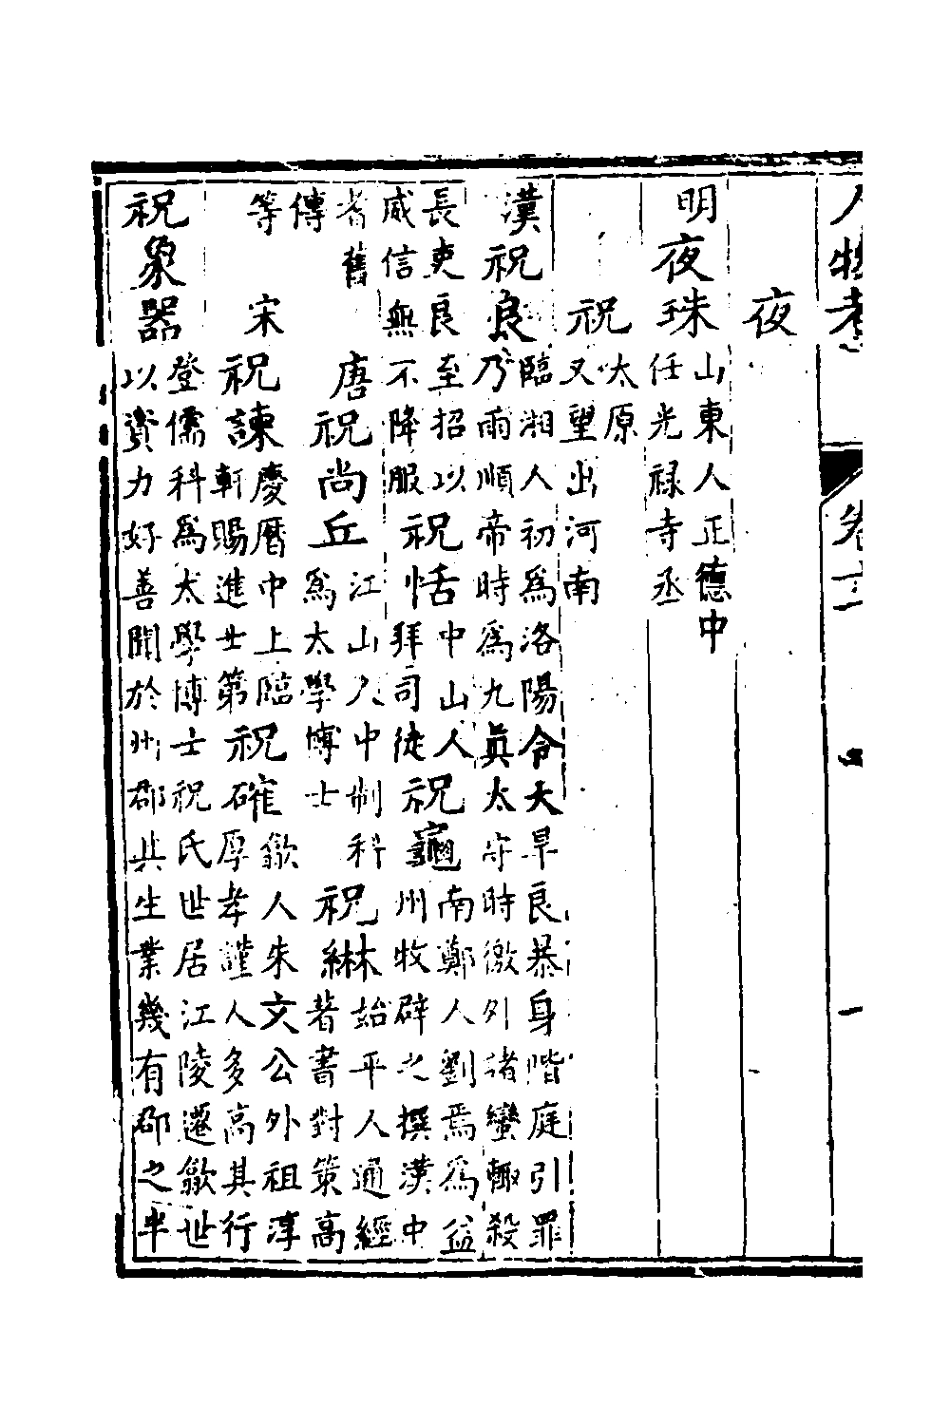 人物考
卷
一
夜
明夜珠
山東人正德中
任光禄寺丞
祝
太原
又望出河南
漢祝良
臨湘人初為洛陽令大旱良暴身階庭引罪
乃雨順帝時為九真太守時徼外諸蠻輙殺
長吏良至招以
威信無不降服
祝恬
中山人
拜司徒
祝龜
南鄭人劉焉為益
州牧辟之撰漢中
耆舊
傳
唐祝尚丘
江山人中制科
為太學博士
祝綝
始平人通經
著書對策高
等
宋祝諫
慶曆中上臨
軒賜進士第
祝確
歙人朱文公外祖淳
厚孝謹人多高其行
祝象器
登儒科為太學博士祝氏世居江陵遷歙世
以資力好善聞於州郡其生業幾有郡之半